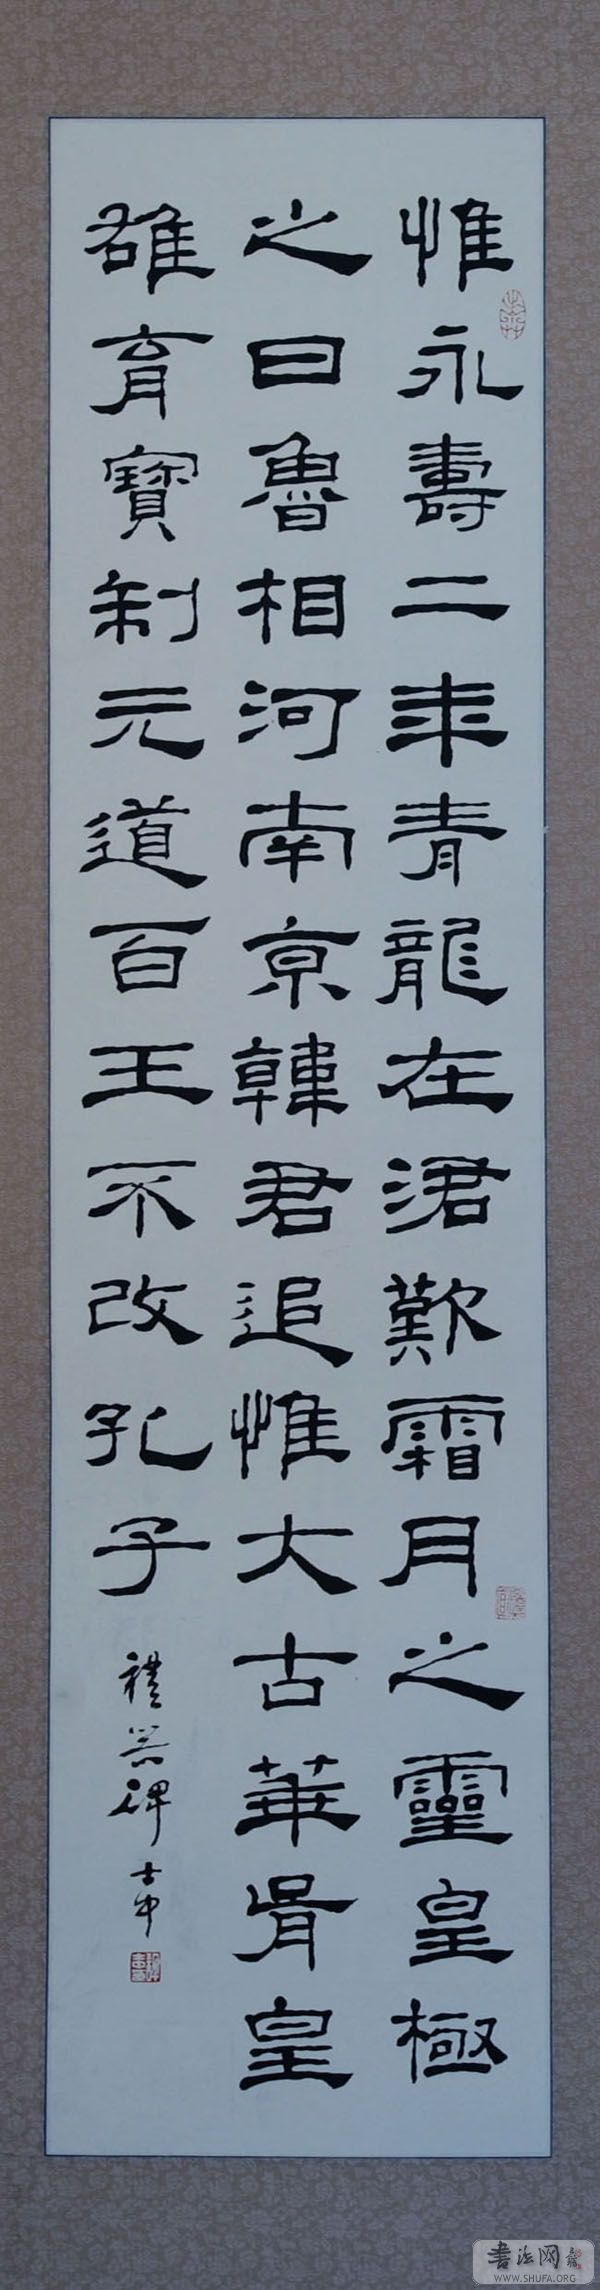 惟永壽二年青龍在涒歎霜月之靈皇極
之日魯相河南京韓君追惟大古華胥皇
雄育寶制元道百王不改孔子
禮器碑 士中
書法网
WWW.SHUFA.ORG